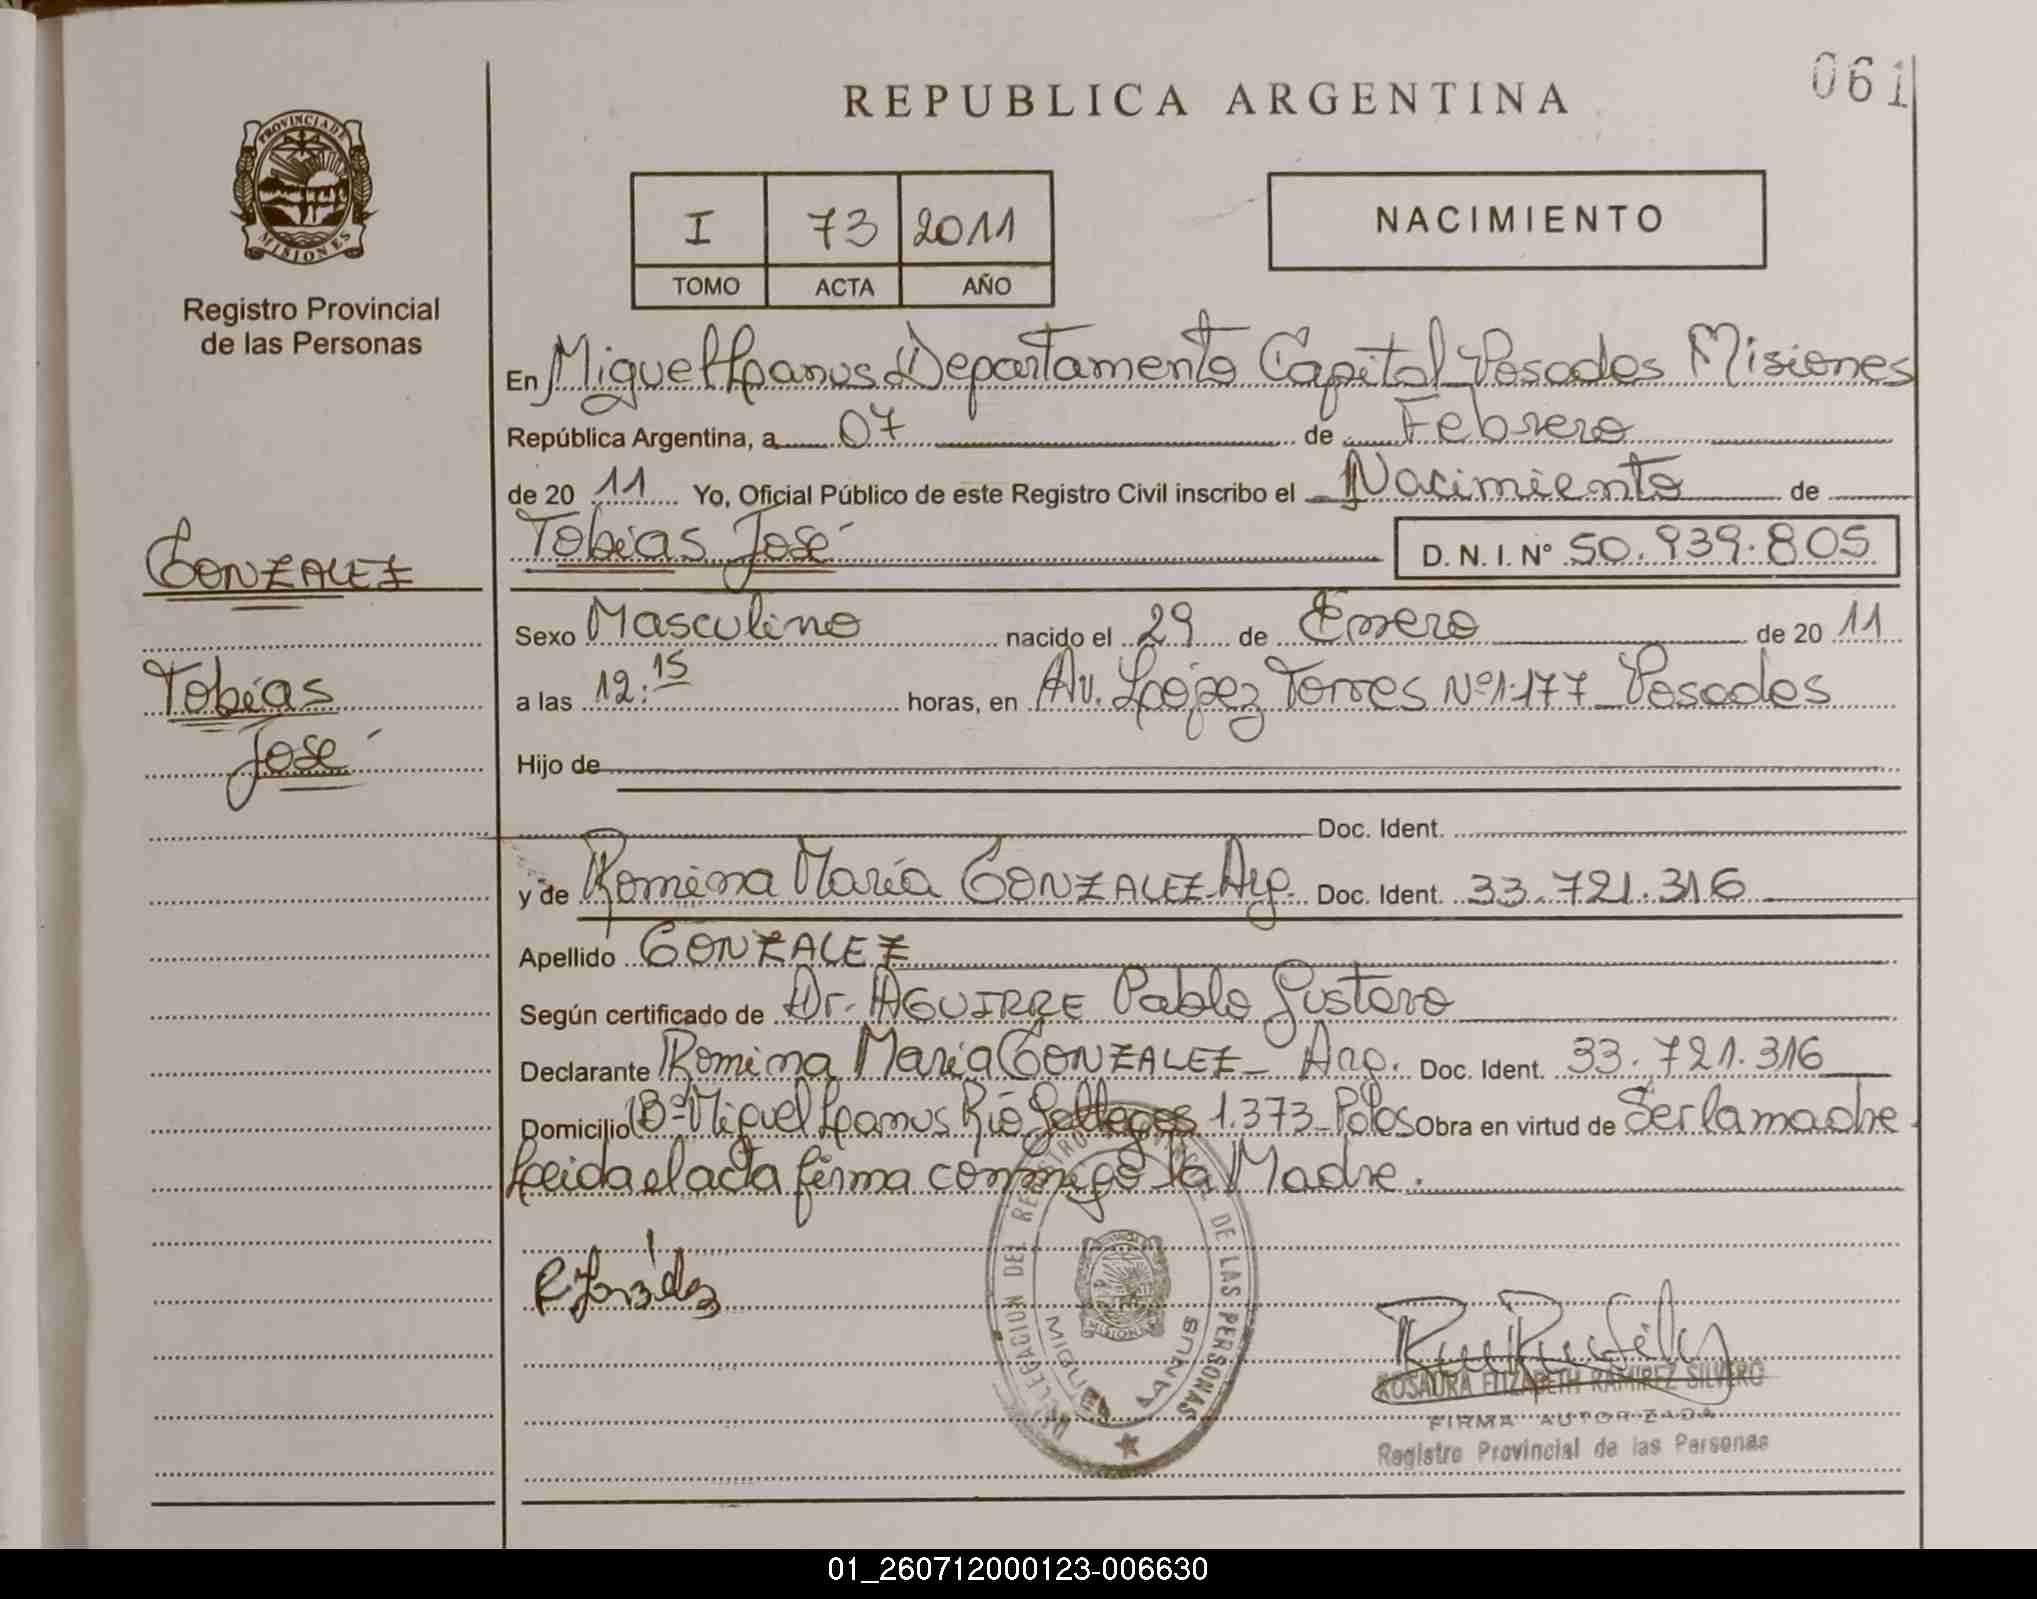 061
REPUBLICA ARGENTINA
PROVINCIA DE
MISIONES
Registro Provincial
de las Personas
I 73 2011
TOMO ACTA AÑO
NACIMIENTO
En Miguel Lanus Departamento Capital Posadas Misiones
República Argentina, a 07 de Febrero
de 20 11 Yo, Oficial Público de este Registro Civil inscribo el Nacimiento de
Tobías José D.N.I. N° 50.939.805
GONZALEZ
Sexo Masculino nacido el 29 de Enero de 20 11
Tobías
a las 12:15 horas, en Av. López Torres Nº 1.177 Posadas
José
Hijo de
Doc. Ident.
y de Romina María GONZALEZ Arg. Doc. Ident. 33.721.316
Apellido GONZALEZ
Según certificado de Dr. AGUIRRE Pablo Gustavo
Declarante Romina María GONZALEZ - Arg. Doc. Ident. 33.721.316
Domicilio Bº Miguel Lanus Río Gallegos 1.373 Pdas Obra en virtud de Ser la madre
Leida el acta firma conmigo la Madre.
DELEGACION DEL REGISTRO DE LAS PERSONAS
MIGUEL LANUS
MISIONES
ROSAURA ELIZABETH RAMIREZ SILVERO
FIRMA AUTORIZADA
Registro Provincial de las Personas
01_260712000123-006630